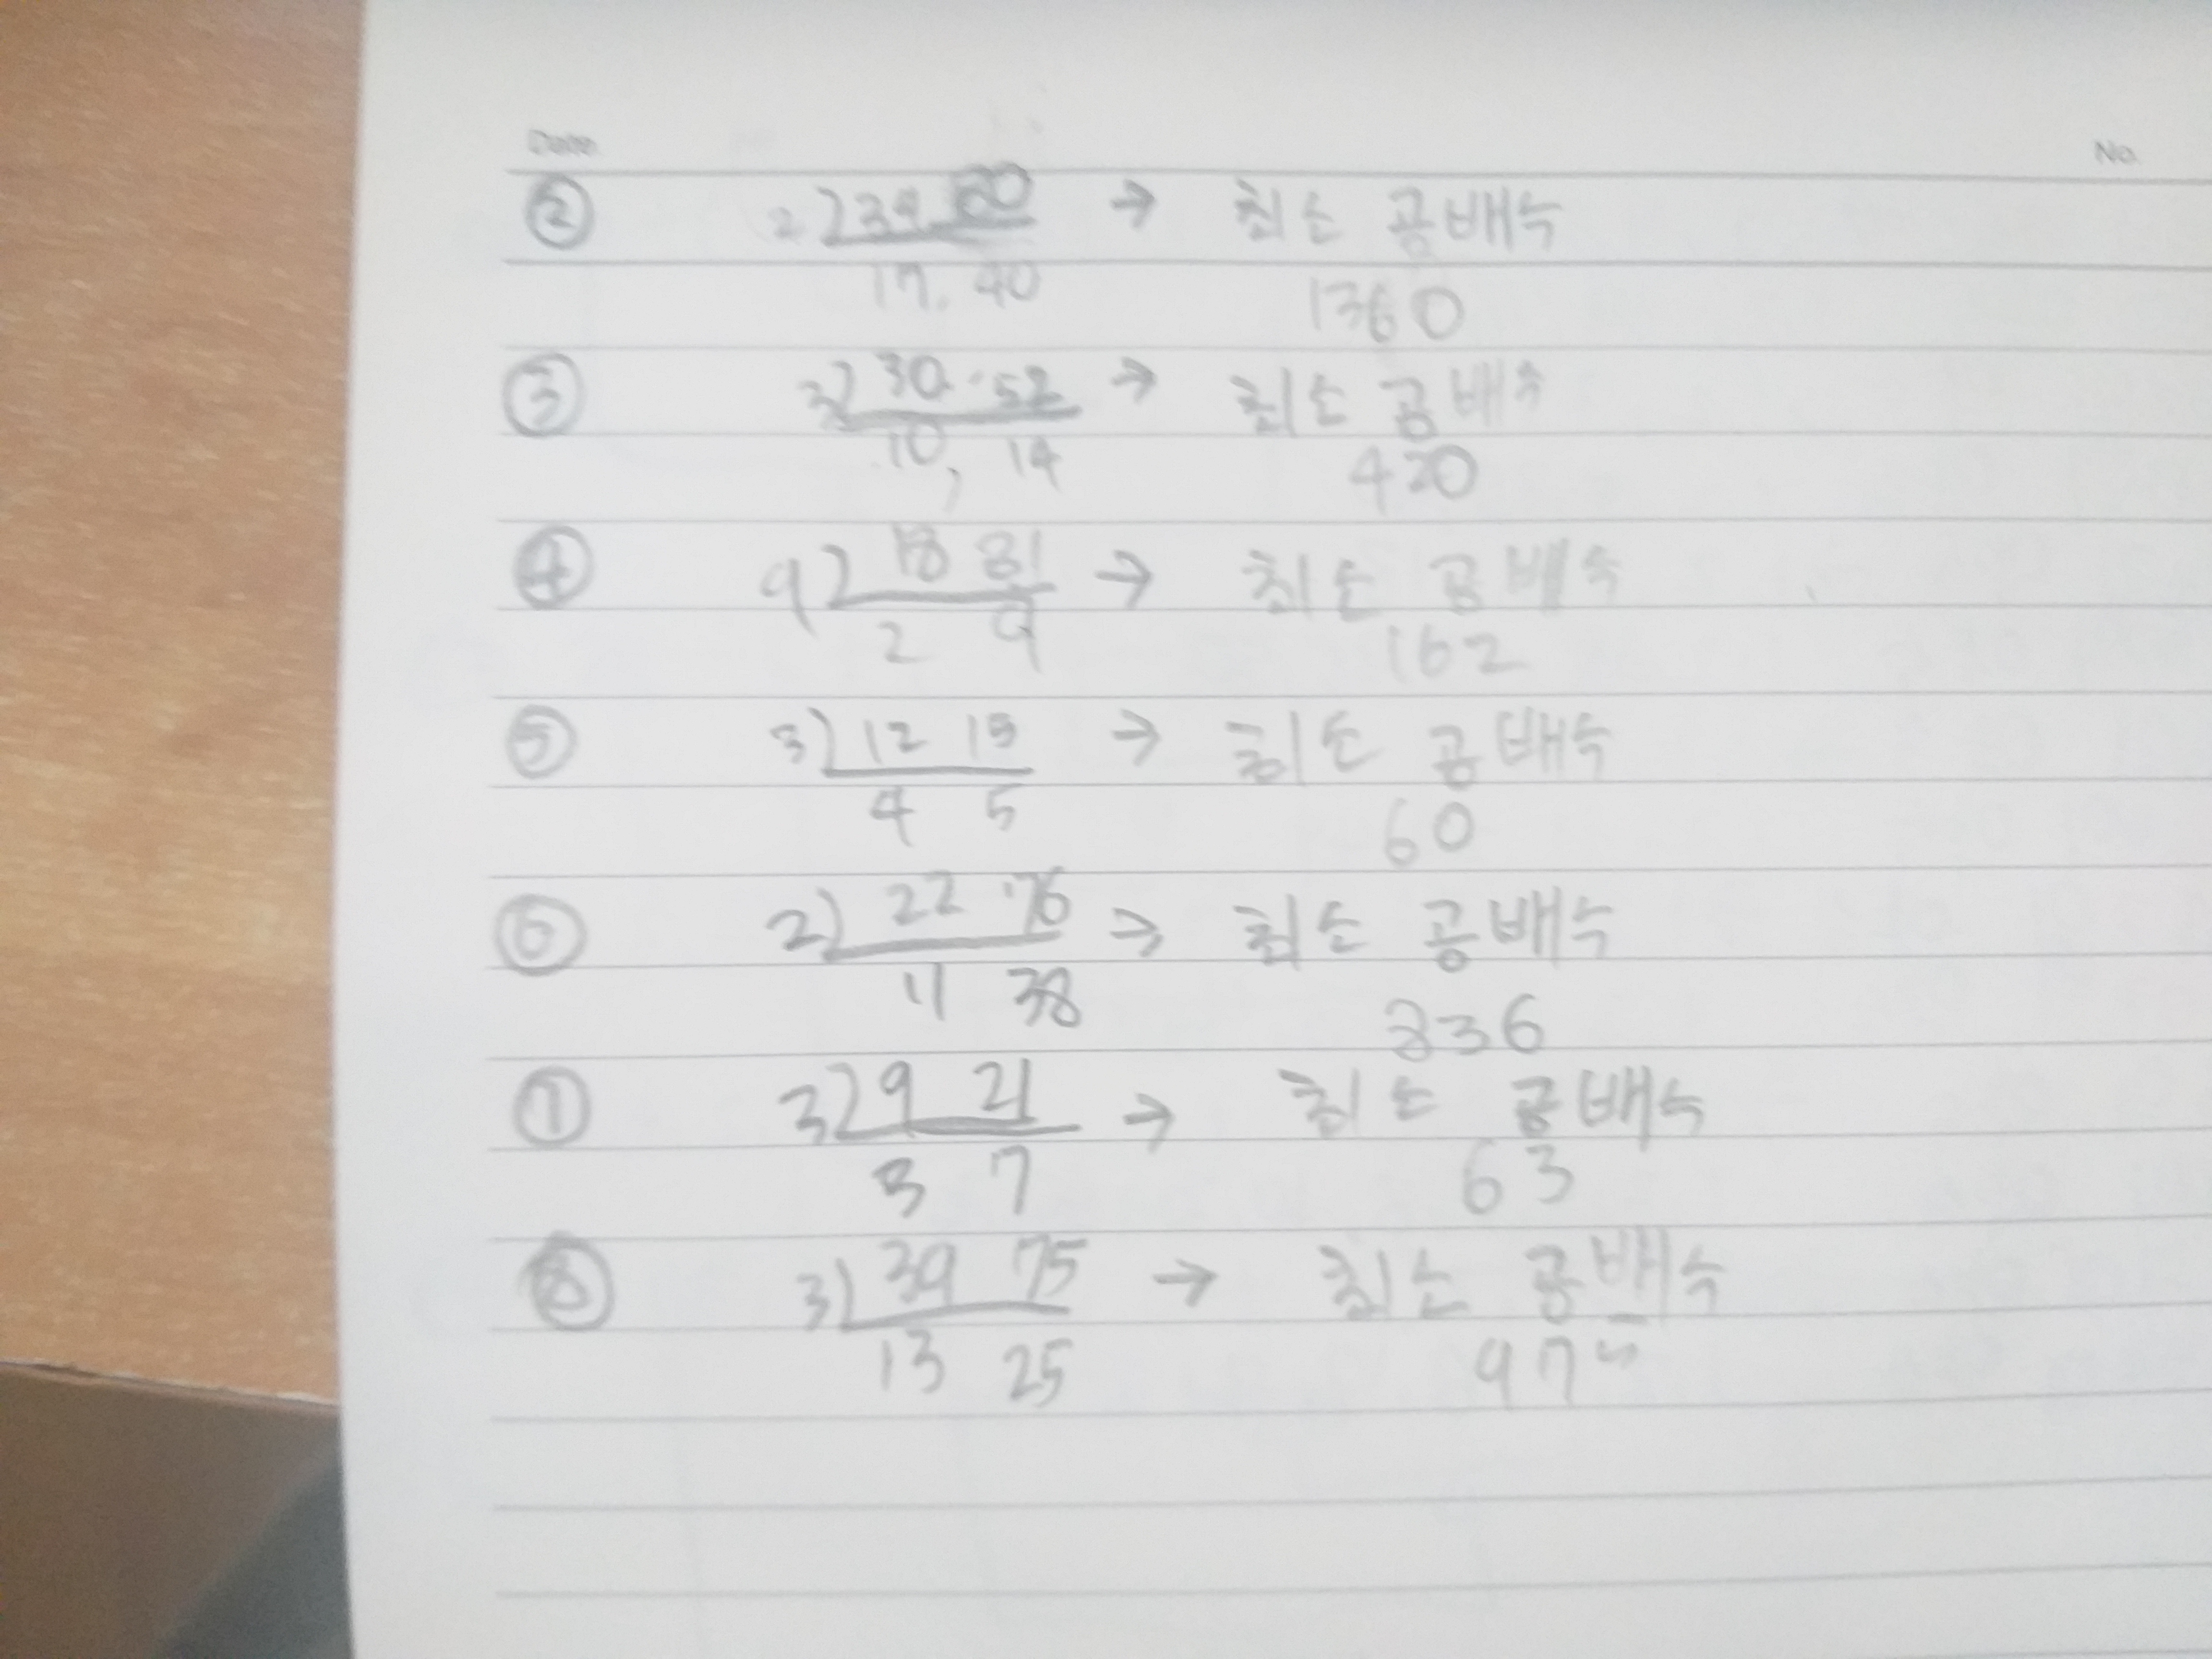 Date No.
② 2)34 80 → 최소 공배수
17, 40 1360
③ 3)30 → 최소 공배수
10, 14 420
④ 9)18 81 → 최소 공배수
2 9 162
⑤ 3)12 15 → 최소 공배수
4 5 60
⑥ 2)22 76 → 최소 공배수
11 38 836
⑦ 3)9 21 → 최소 공배수
3 7 63
⑧ 3)39 75 → 최소 공배수
13 25 975